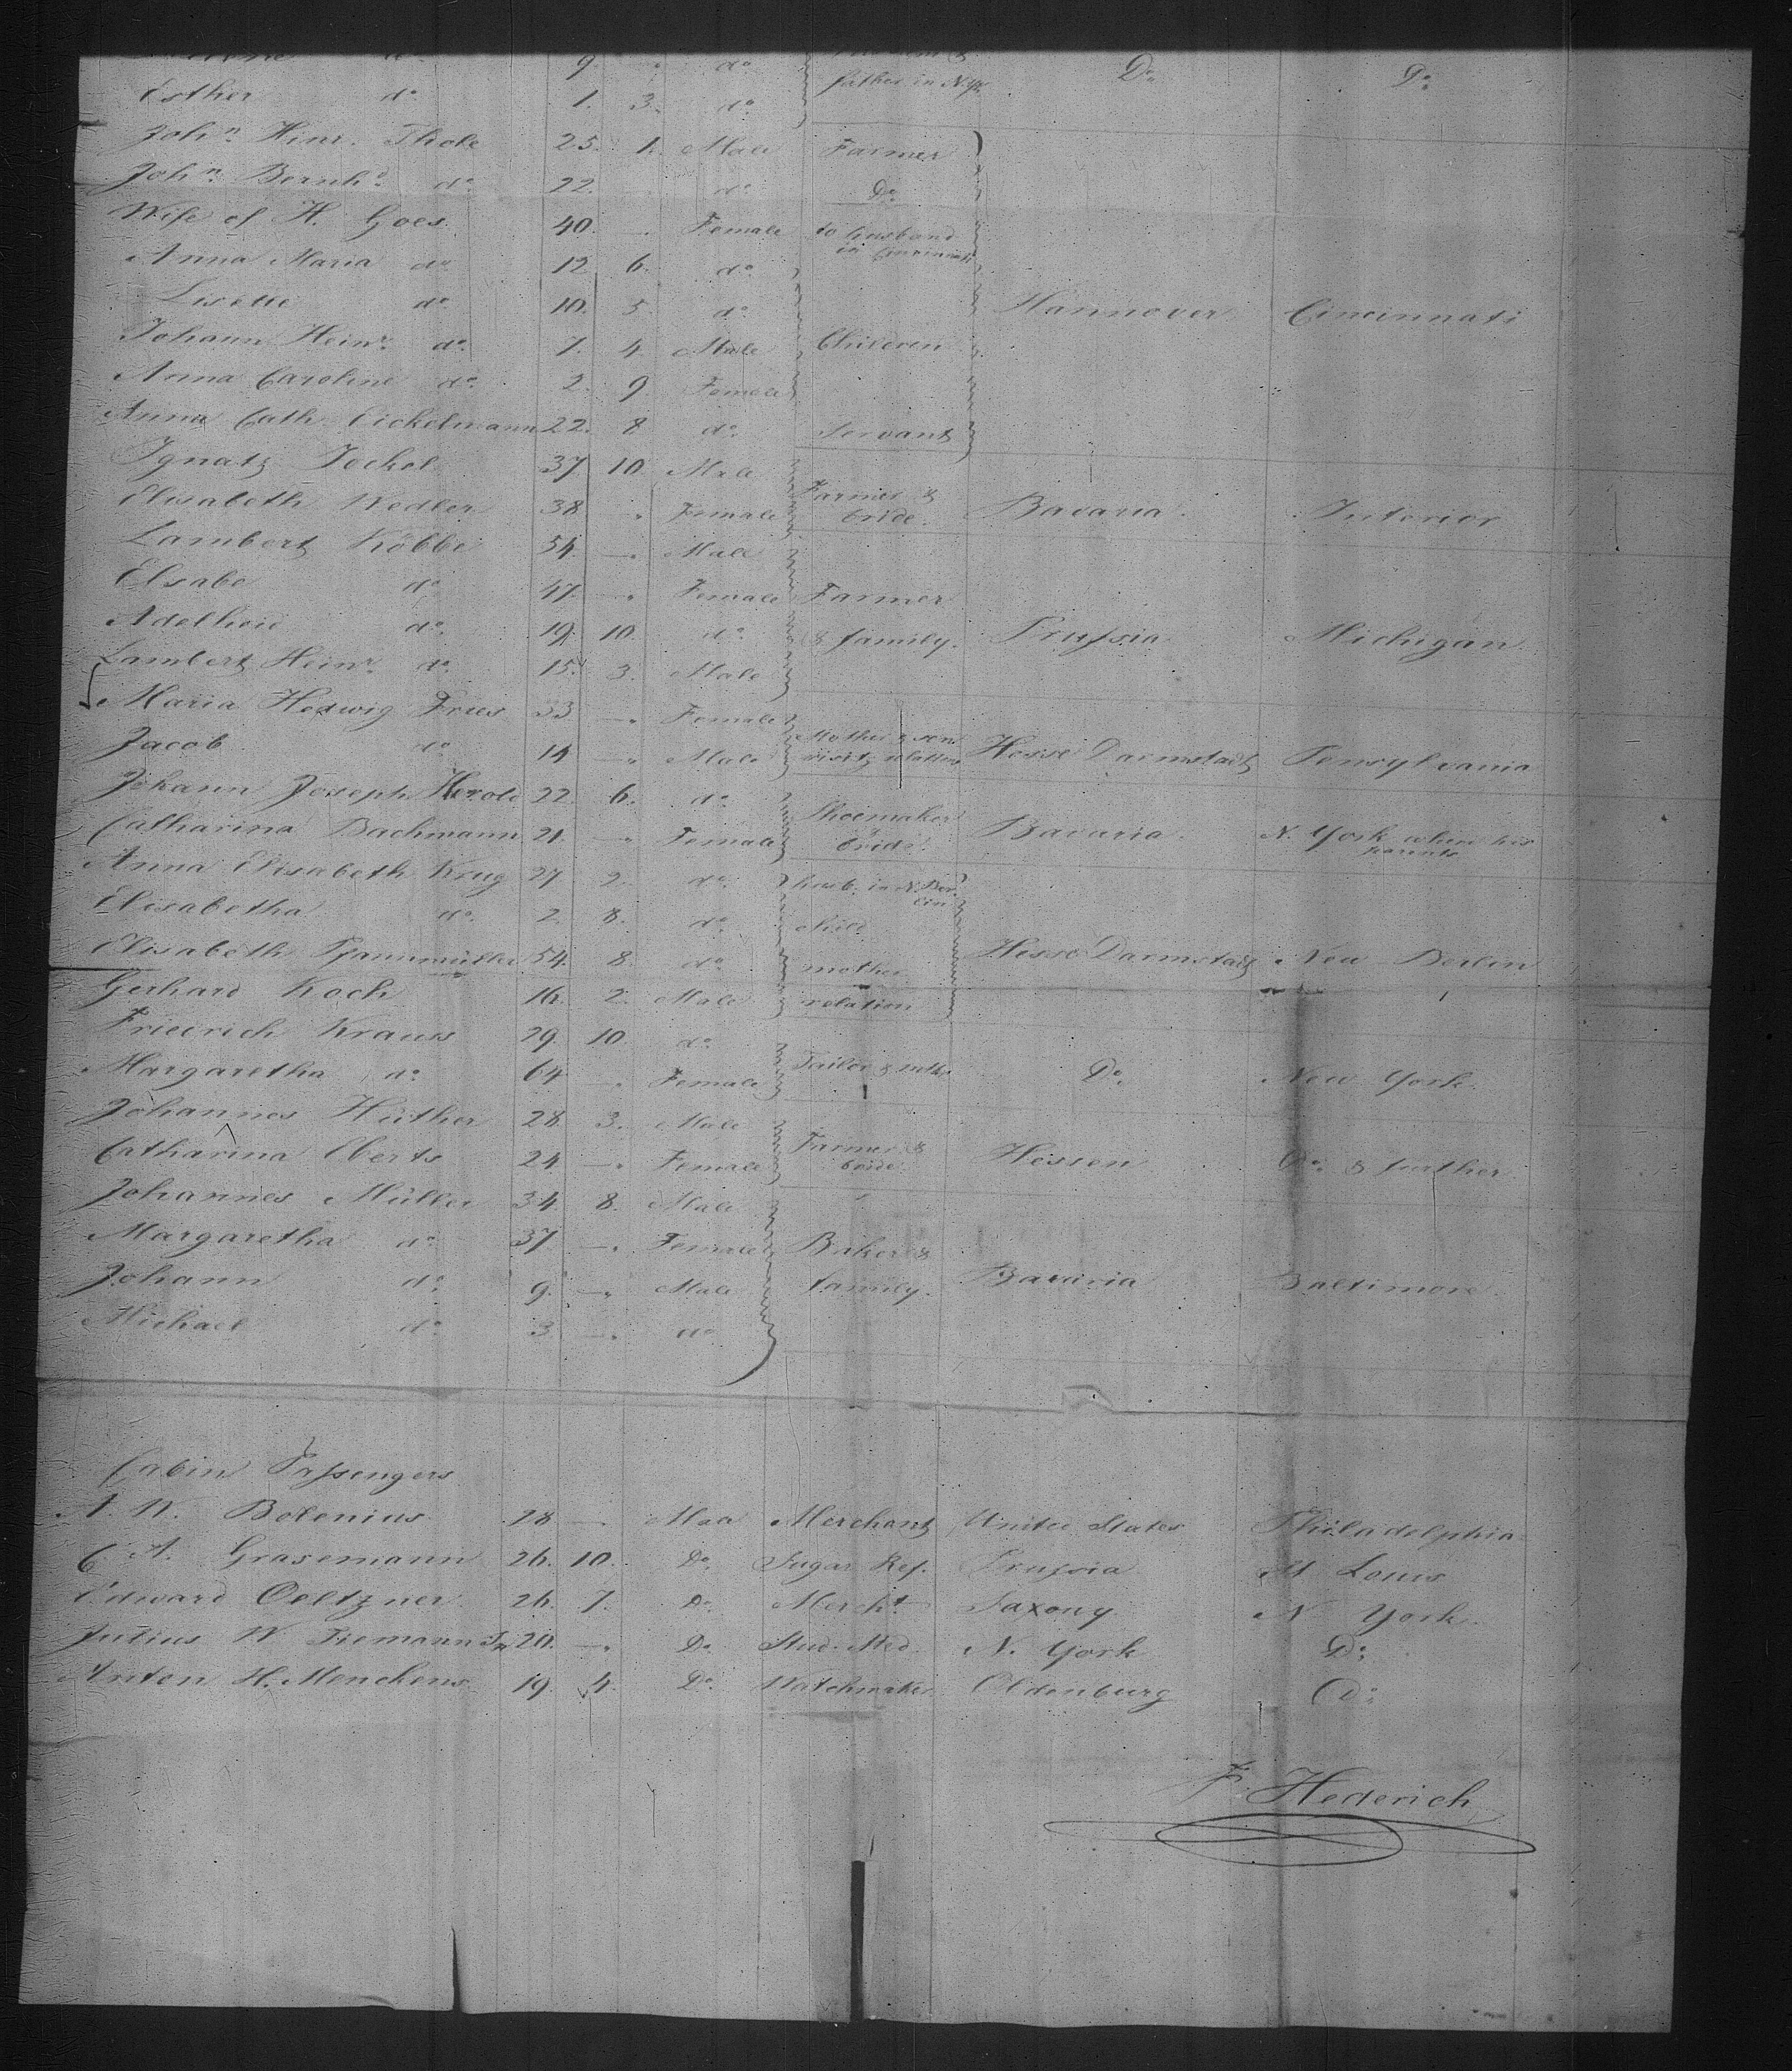 9 " do
Esther do 1. 3. do father in N.Yk Do Do
John Hinr. Thole 25. 1. Male Farmer
John Bernhd do 22. — do Do
Wife of H. Goes 40. — Female to husband in Cincinnati
Anna Maria do 12 6. do
Lisette do 10. 5. do Hannover Cincinnati
Johann Heinr. do 7. 4 Male Children
Anna Caroline do 2. 9. Female
Anna Cath. Eickelmann 22. 8 do Servant
Ignatz Jockel 37 10 Male
Elisabeth Wedler 38 " Female Farmer & bride. Bavaria Interior
Lambert Köbbe 54. — Male
Elsabe do 47. — Female Farmer
Adelheid do 19. 10. do & family. Prussia Michigan
Lambert Heinr. do 15. 3. Male
Maria Hedwig Fries 33 — Female
Jacob do 14 — Male Mother & son visitg relations Hesse Darmstadt Pensylvania
Johann Joseph Herold 22. 6. do
Catharina Bachmann 21. — Female Shoemaker & bride. Bavaria N. York where his parents
Anna Elisabeth Krug 27 2. do husb. in N. Berlin
Elisabetha do 2. 8. do child
Elisabeth 54. 8. do mother Hesse Darmstadt New Berlin
Gerhard Koch 16. 2. Male relation
Friedrich Krauss 29. 10. do
Margaretha do 64 — Female Tailor & moth. Do New York
Johannes Hüther 28. 3. Male
Catharina Eberts 24 — Female Farmer & bride Hessen Do & further
Johannes Müller 34. 8. Male
Margaretha do 37 — Female Baker &
Johann do 9. — Male family. Bavaria Baltimore
Michael do 3 — do
Cabin Passengers
A. W. Bolenius 28 — Male Merchant United States Philadelphia
C. A. Grasemann 26. 10. Do Sugar Ref. Prussia St Louis
Edward Oeltzner 26. 7. Do Mercht Saxony N York
Julius W Tiemann Jr 20. — Do Stud. Med. N. York Do
Anton H. Menchens 19 4. Do Watchmaker Oldenburg Do
F. Hederich